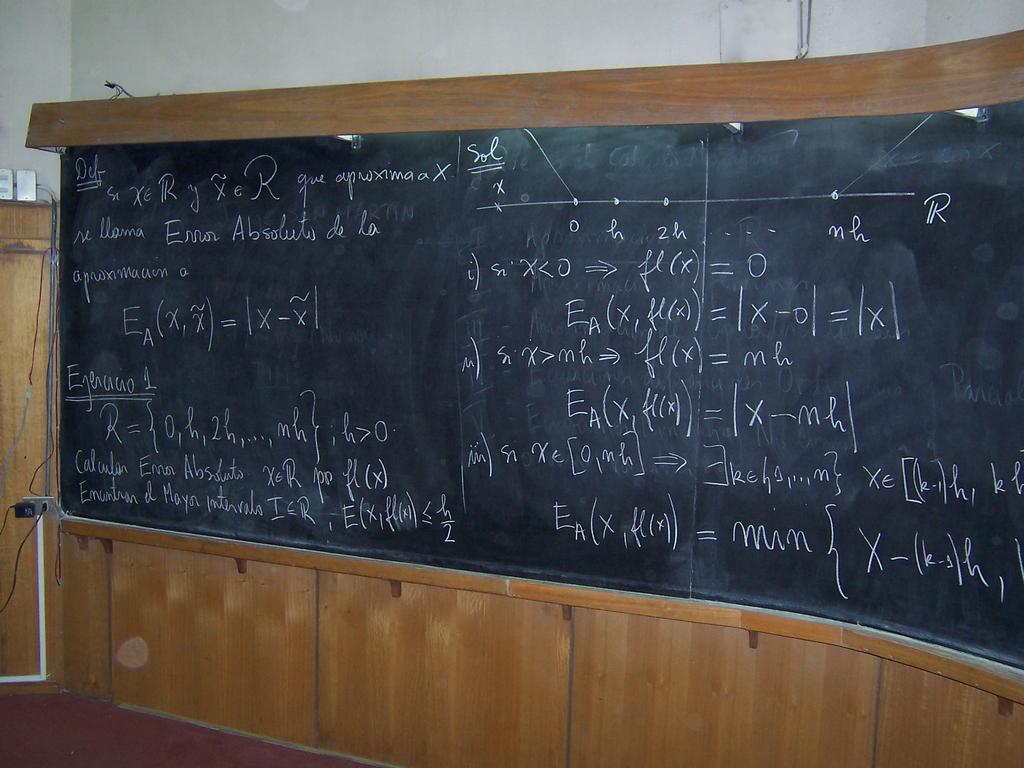 Def
si x ∈ ℝ y x̃ ∈ R que aproxima a x
se llama Error Absoluto de la
aproximación a
E_A(x, x̃) = |x - x̃|
Ejercicio 1
R = {0, h, 2h, ..., nh} ; h>0.
Calcular Error Absoluto x∈ℝ por fl(x)
Encontrar el Mayor intervalo I ⊆ ℝ , E(x, fl(x)) ≤ h/2
Sol
x
0 h 2h ... nh ℝ
i) si x<0 ⇒ fl(x) = 0
E_A(x, fl(x)) = |x-0| = |x|
ii) si x>nh ⇒ fl(x) = nh
E_A(x, fl(x)) = |x-nh|
iii) si x∈[0,nh] ⇒ ∃ k∈{1,...,n} x∈[(k-1)h, kh
E_A(x, fl(x)) = min { x-(k-1)h,